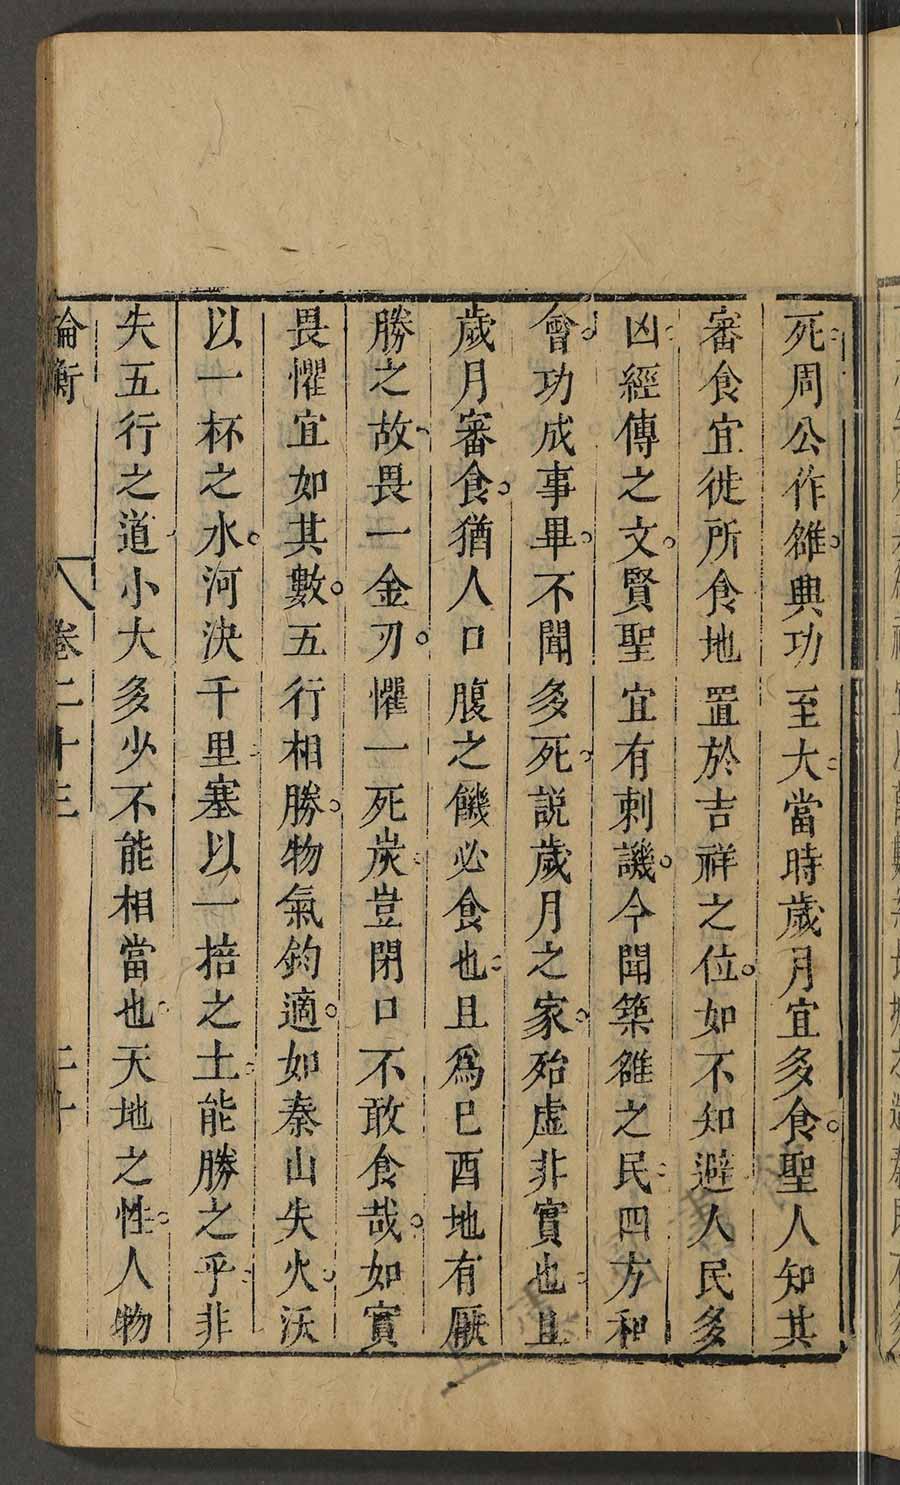 死周公作雒興功至大當時歲月宜多食聖人知其
審食宜徙所食地置於吉祥之位如不知避人民多
凶經傳之文賢聖宜有刺譏今聞築雒之民四方和
會功成事畢不聞多死說歲月之家殆虛非實也且
歲月審食猶人口腹之饑必食也且爲巳酉地有厭
勝之故畏一金刃懼一死炭豈閉口不敢食哉如實
畏懼宜如其數五行相勝物氣鈞適如秦山失火沃
以一杯之水河決千里塞以一掊之土能勝之乎非
失五行之道小大多少不能相當也天地之性人物
論衡 卷二十三 二十